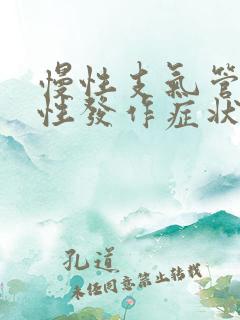 慢性支氣管
性發作症狀
孔道
未任同意禁止转载